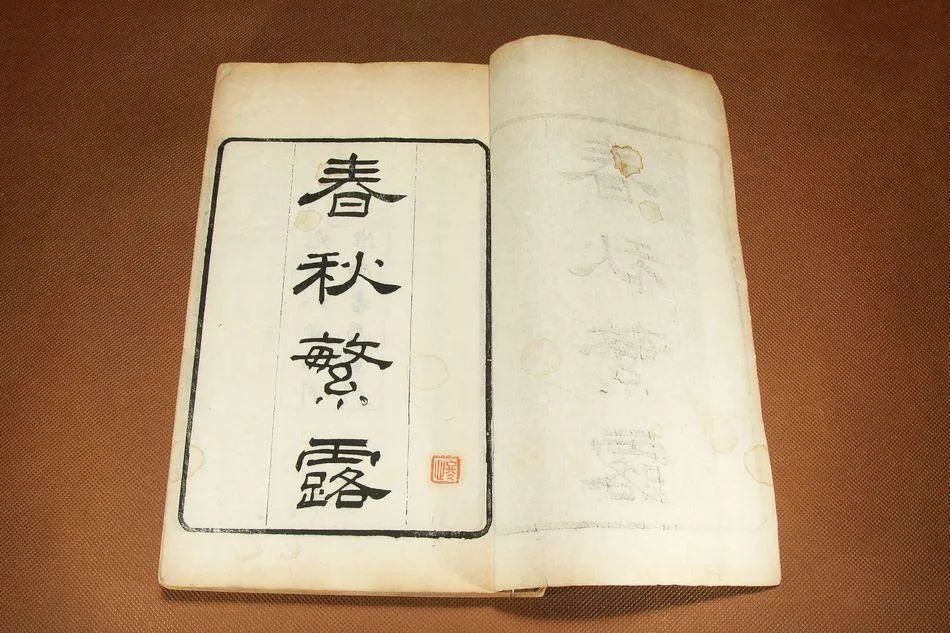 春秋繁露